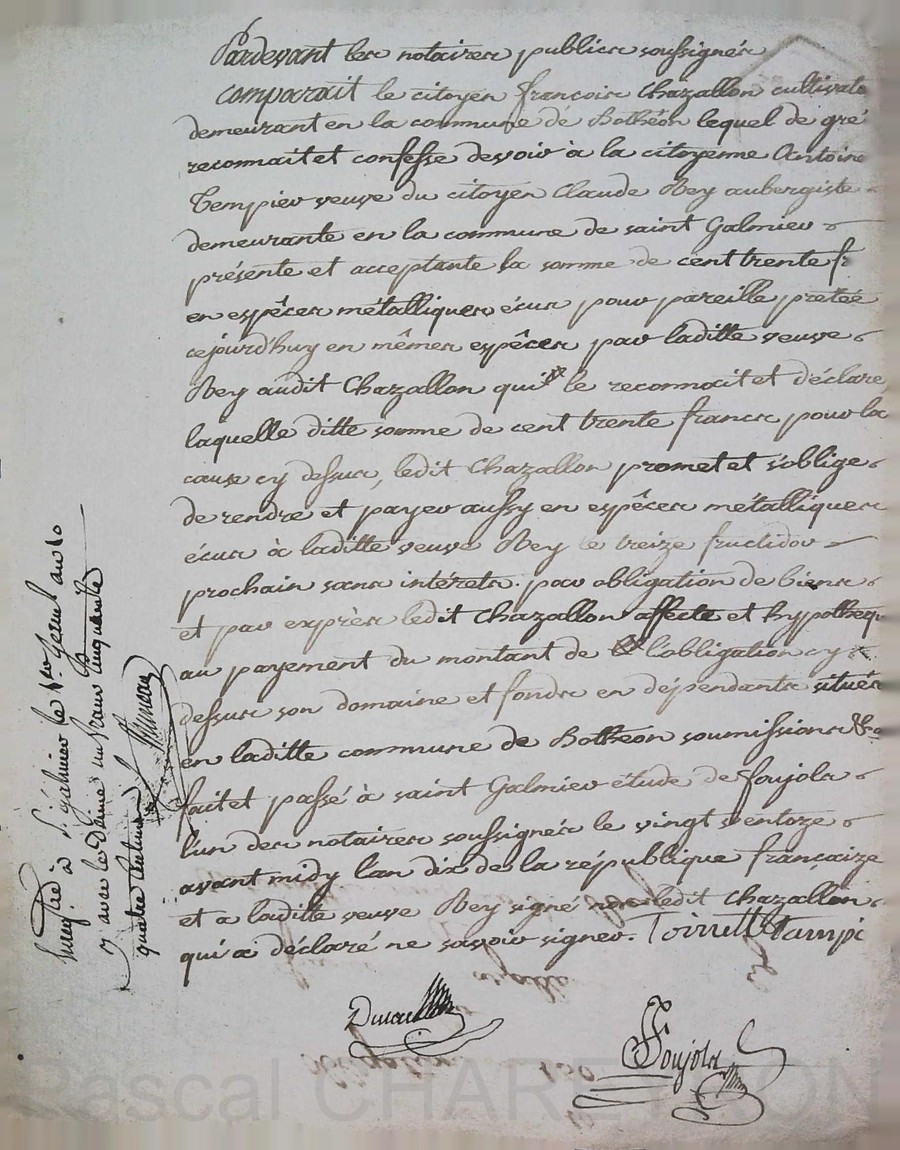 Pardevant les notaires publics soussignés
comparait le citoyen françois Chazallon cultivate
demeurant en la commune de Bothéon lequel de gré
reconnait et confesse devoir à la citoyenne Antoine
Tempier veuve du citoyen Claude Rey aubergiste
demeurante en la commune de saint Galmier
présente et acceptante la somme de cent trente fr
en espêces métalliques écus pour pareille pretée
cejourd'huy en mêmes espêces par laditte veuve
Rey audit Chazallon qui le reconnait et déclare
laquelle ditte somme de cent trente francs pour la
cause cy dessus, ledit Chazallon promet et s'oblige
de rendre et payer aussy en espêces métalliques
écus à laditte veuve Rey le treize fructidor
prochain sans intérets. par obligation de biens
et par exprès ledit Chazallon affecte et hypothequ
au payement du montant de l'obligation cy
dessus son domaine et fonds en dépendants situés
en laditte commune de Bothéon soumissions &a
fait et passé à saint Galmier étude de foujols
l'un des notaires soussignés le vingt ventoze
avant midy l'an dix de la république françaize
et a laditte veuve Rey signé non ledit Chazallon
qui a déclaré ne savoir signer. Toinette Tampi
Foujols
Enregtré à St galmier le 1er germl an 10
reçu avec le Décime un franc Cinquante
quatre Centimes
obligation
130
Pascal CHARETRON